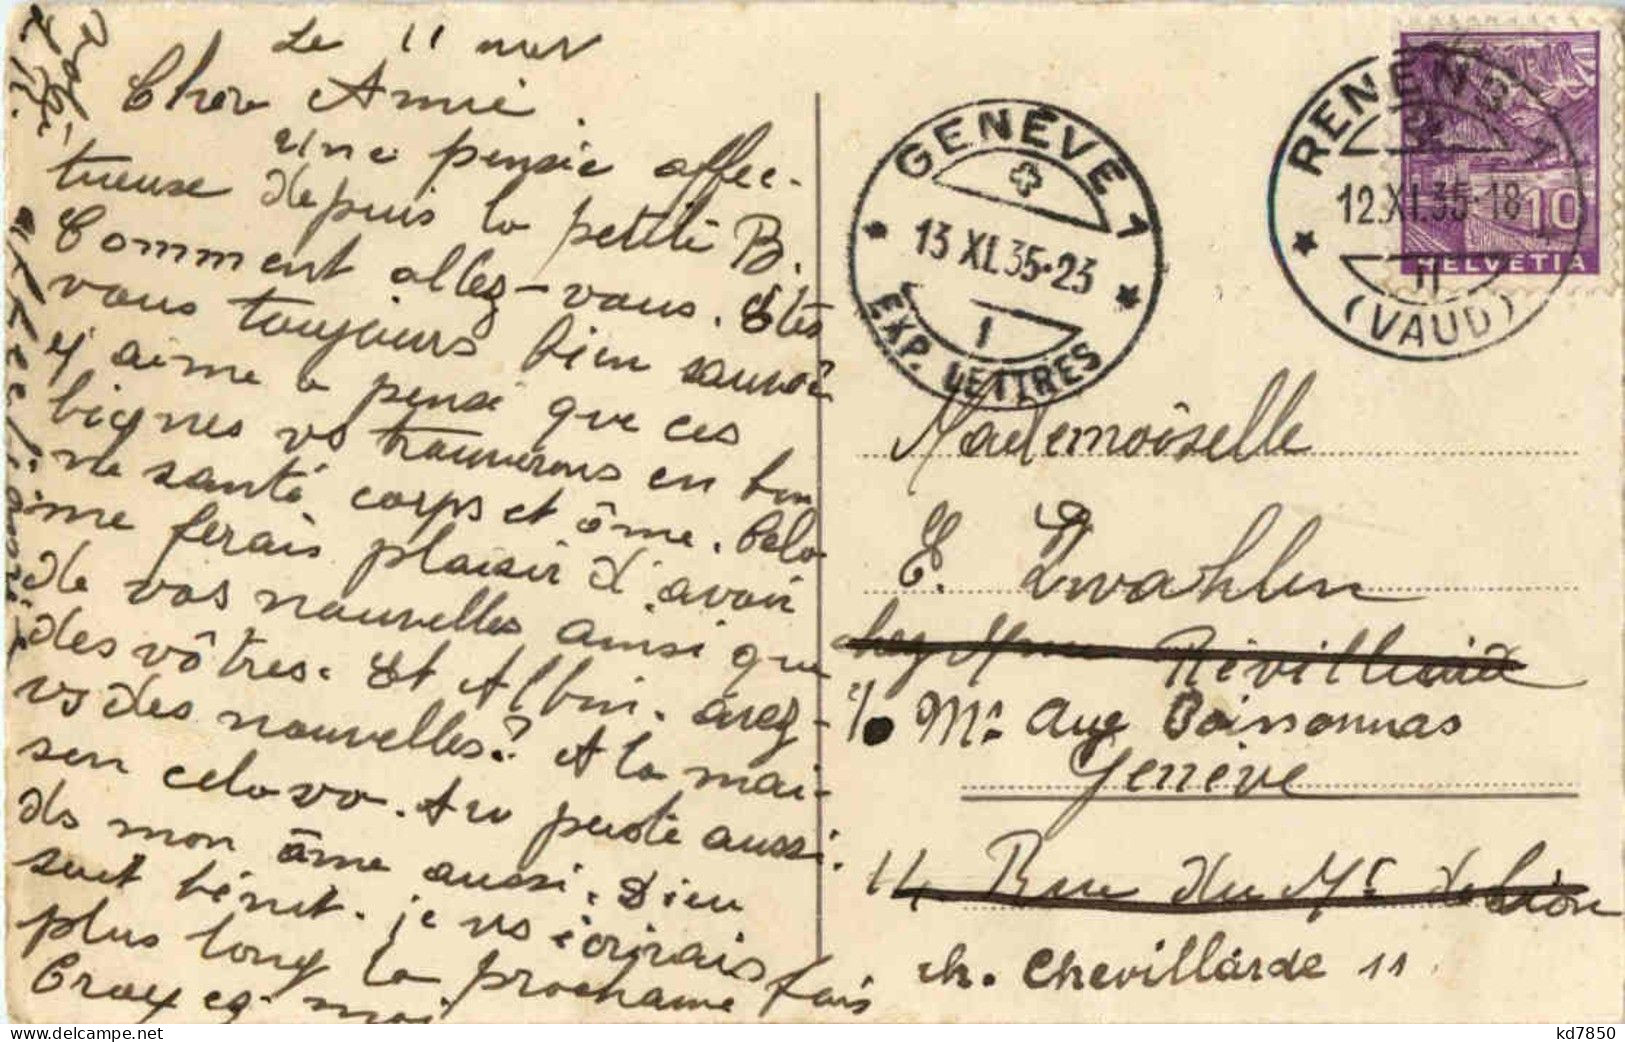 Le 11 nov
Chère Amie.
Une pensée affec-
tueuse depuis la petite B.
Comment allez-vous. Etes
vous toujours bien
j'aime à pensé que ces
lignes vs trouverons en bon
ne santé corps et âme. Cela
me ferais plaisir d'avoir
de vos nouvelles ainsi que
des vôtres. Et Albin. avez-
vs des nouvelles? A la mai-
son cela va. Au poste aussi.
Ds mon âme aussi. Dieu
soit bénit. je vs écrirais
plus long la prochaine fois
Croyez moi
GENÈVE 1
13 XI.35-23
1
EXP. LETTRES
RENENS 1
12.XI.35-18
II
(VAUD)
10
HELVETIA
Mademoiselle
E. Zwahlen
chez Mme Révilliod
c/o Mr Aug Boissonnas
Genève
14 Rue du Mt de Sion
ch. Chevillarde 11
kd7850